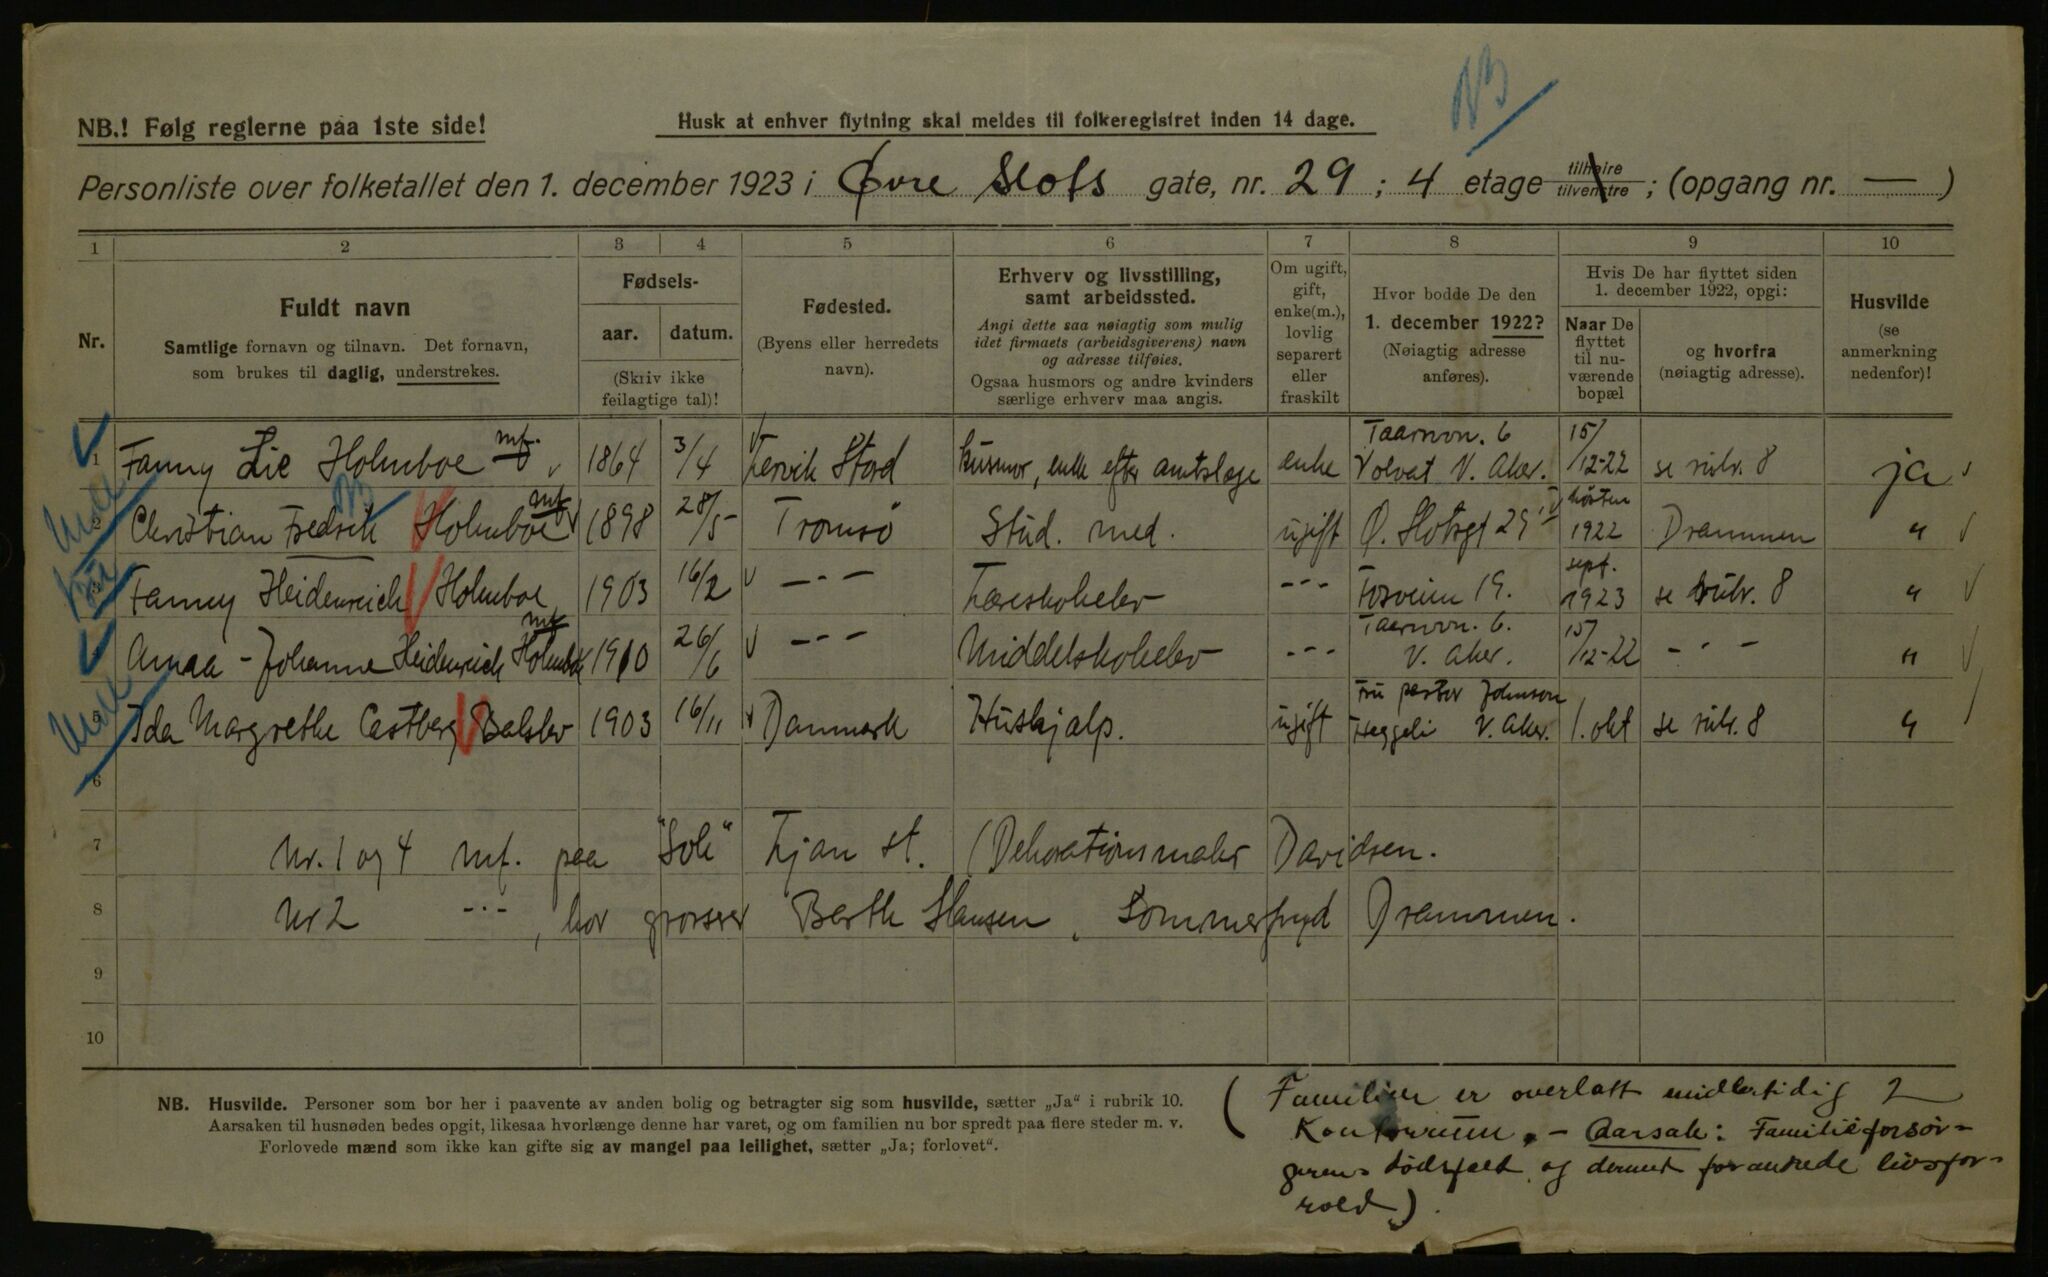 NB
NB.! Følg reglerne paa 1ste side!
Husk at enhver flytning skal meldes til folkeregistret inden 14 dage.
Personliste over folketallet den 1. december 1923 i Øvre Slots gate, nr. 29 ; 4 etage tilhøire tilvenstre ; (opgang nr. — )
1 2 3 4 5 6 7 8 9 10
Nr.
Fuldt navn
Samtlige fornavn og tilnavn. Det fornavn,
som brukes til daglig, understrekes.
Fødsels-
aar. datum.
(Skriv ikke
feilagtige tal)!
Fødested.
(Byens eller herredets
navn).
Erhverv og livsstilling,
samt arbeidssted.
Angi dette saa nøiagtig som mulig
idet firmaets (arbeidsgiverens) navn
og adresse tilføies.
Ogsaa husmors og andre kvinders
særlige erhverv maa angis.
Om ugift,
gift,
enke(m.),
lovlig
separert
eller
fraskilt
Hvor bodde De den
1. december 1922?
(Nøiagtig adresse
anføres).
Hvis De har flyttet siden
1. december 1922, opgi:
Naar De
flyttet
til nu-
værende
bopæl
og hvorfra
(nøiagtig adresse).
Husvilde
(se
anmerkning
nedenfor)!
1 Fanny Lie Holmboe mf. 1864 3/4 Stord husmor, enke efter amtslæge enke Taarnvn. 6 Volvat V. Aker. 15/12-22 se rubr. 8 ja
2 Christian Fredrik Holmboe mf 1898 28/5 Tromsø Stud. med. ugift Ø. Slotsgt 29 IV høsten 1922 Drammen "
3 Fanny Heidenreich Holmboe 1903 16/2 -"- Læreskoleelev -"- 19. sept. 1923 se rubr. 8 "
4 Anna-Johanne Heidenreich Holmboe mf 1910 26/6 -"- Middelskoleelev -"- Taarnvn. 6. V. Aker. 15/12-22 - " - "
5 Ida Margrethe Castberg Balslev 1903 16/11 Danmark Huskjælp. ugift Fru pastor Johnson Heggeli V. Aker. 1. okt se rubr. 8 "
6
7 Nr. 1 og 4 mf. paa "Sole" Ljan st. (Dekorationsmaler Davidsen.
8 Nr 2 -"-, hos grosserer Barth Hansen, Sommerfryd Drammen.
9
10
NB. Husvilde. Personer som bor her i paavente av anden bolig og betragter sig som husvilde, sætter „Ja" i rubrik 10.
Aarsaken til husnøden bedes opgit, likesaa hvorlænge denne har varet, og om familien nu bor spredt paa flere steder m. v.
Forlovede mænd som ikke kan gifte sig av mangel paa leilighet, sætter „Ja; forlovet".
(Familien er overlatt midlertidig 2
Kontorrum. – Aarsak: Familieforsør-
gerens dødsfald og dermed forandrede livsfor-
hold).